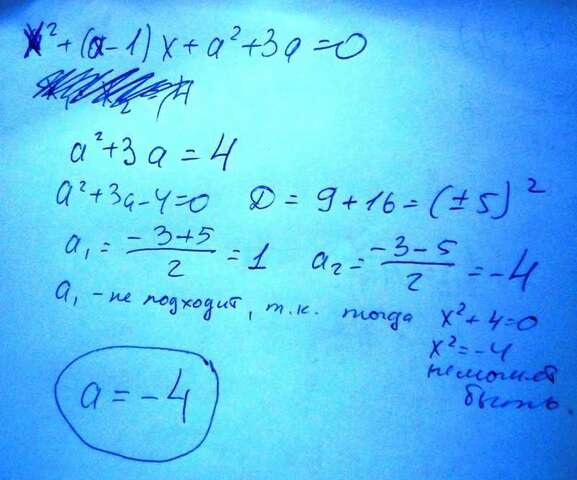 x² + (a - 1) x + a² + 3a = 0
a² + 3a = 4
a² + 3a - 4 = 0 D = 9 + 16 = (± 5)²
a₁ = (-3+5)/2 = 1 a₂ = (-3-5)/2 = -4
a₁ - не подходит, т.к. тогда x² + 4 = 0
x² = -4
не может
быть.
a = -4